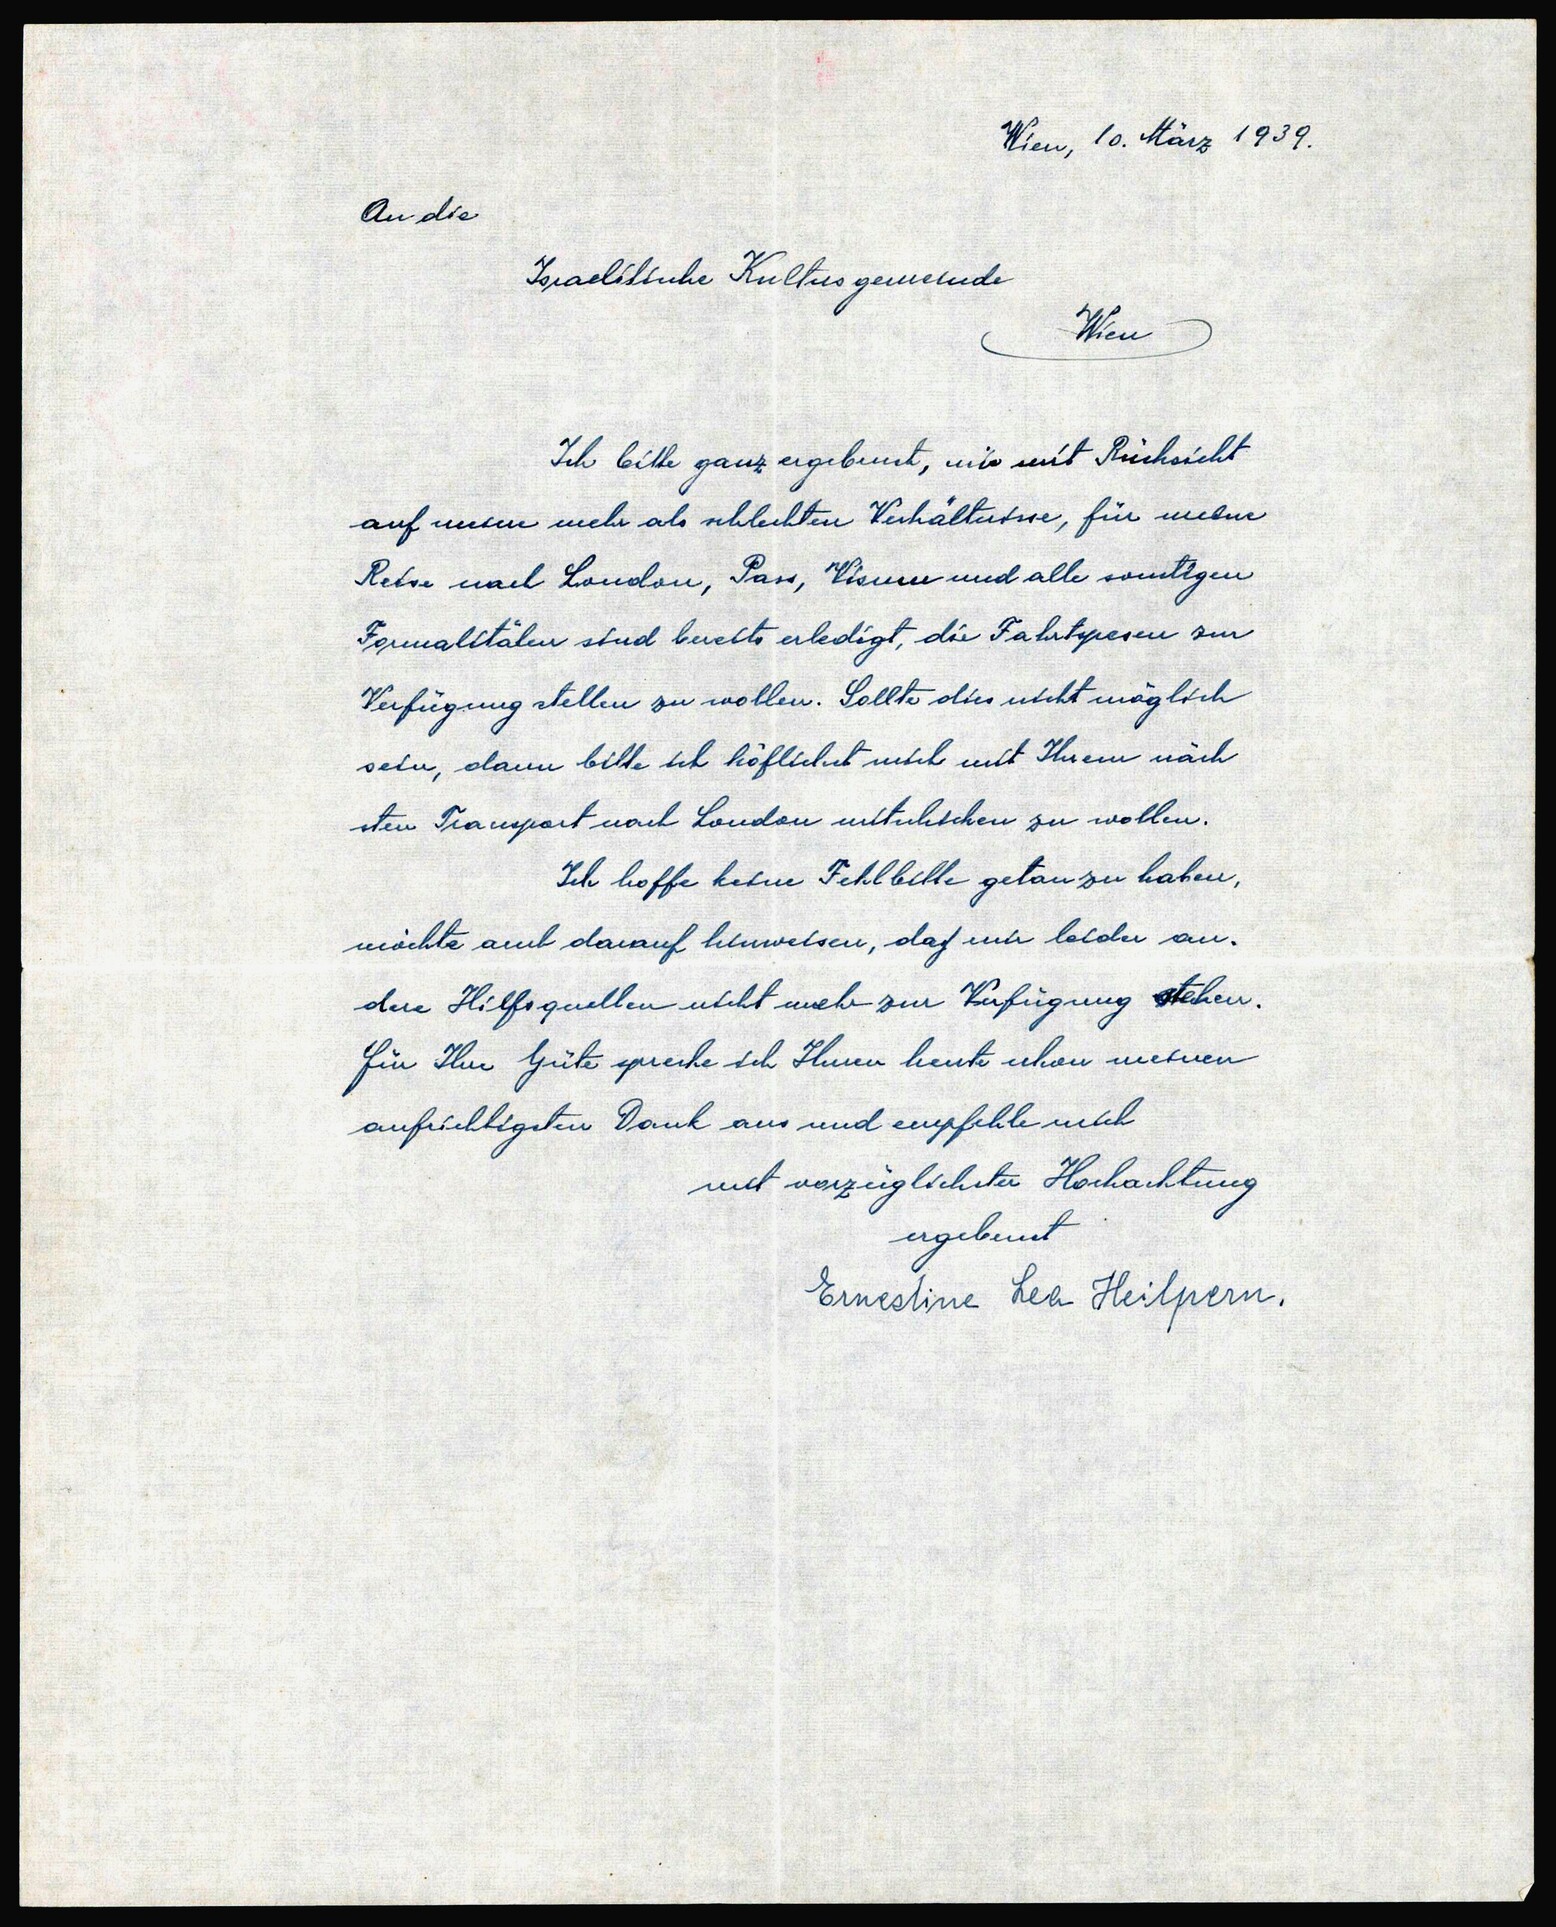 Wien, 10. März 1939.
An die
Israelitische Kultusgemeinde
Wien
Ich bitte ganz ergebenst, mir mit Rücksicht
auf meine mehr als schlechten Verhältnisse, für meine
Reise nach London, Pass, Visum und alle sonstigen
Formalitäten sind bereits erledigt, die Fahrtspesen zur
Verfügung stellen zu wollen. Sollte dies nicht möglich
sein, dann bitte ich höflichst mich mit Ihrem näch
sten Transport nach London mitschicken zu wollen.
Ich hoffe keine Fehlbitte getan zu haben,
möchte auch darauf hinweisen, daß mir leider an-
dere Hilfsquellen nicht mehr zur Verfügung stehen.
Für Ihre Güte spreche ich Ihnen heute schon meinen
aufrichtigsten Dank aus und empfehle mich
mit vorzüglichster Hochachtung
ergebenst
Ernestine Lea Heilpern.